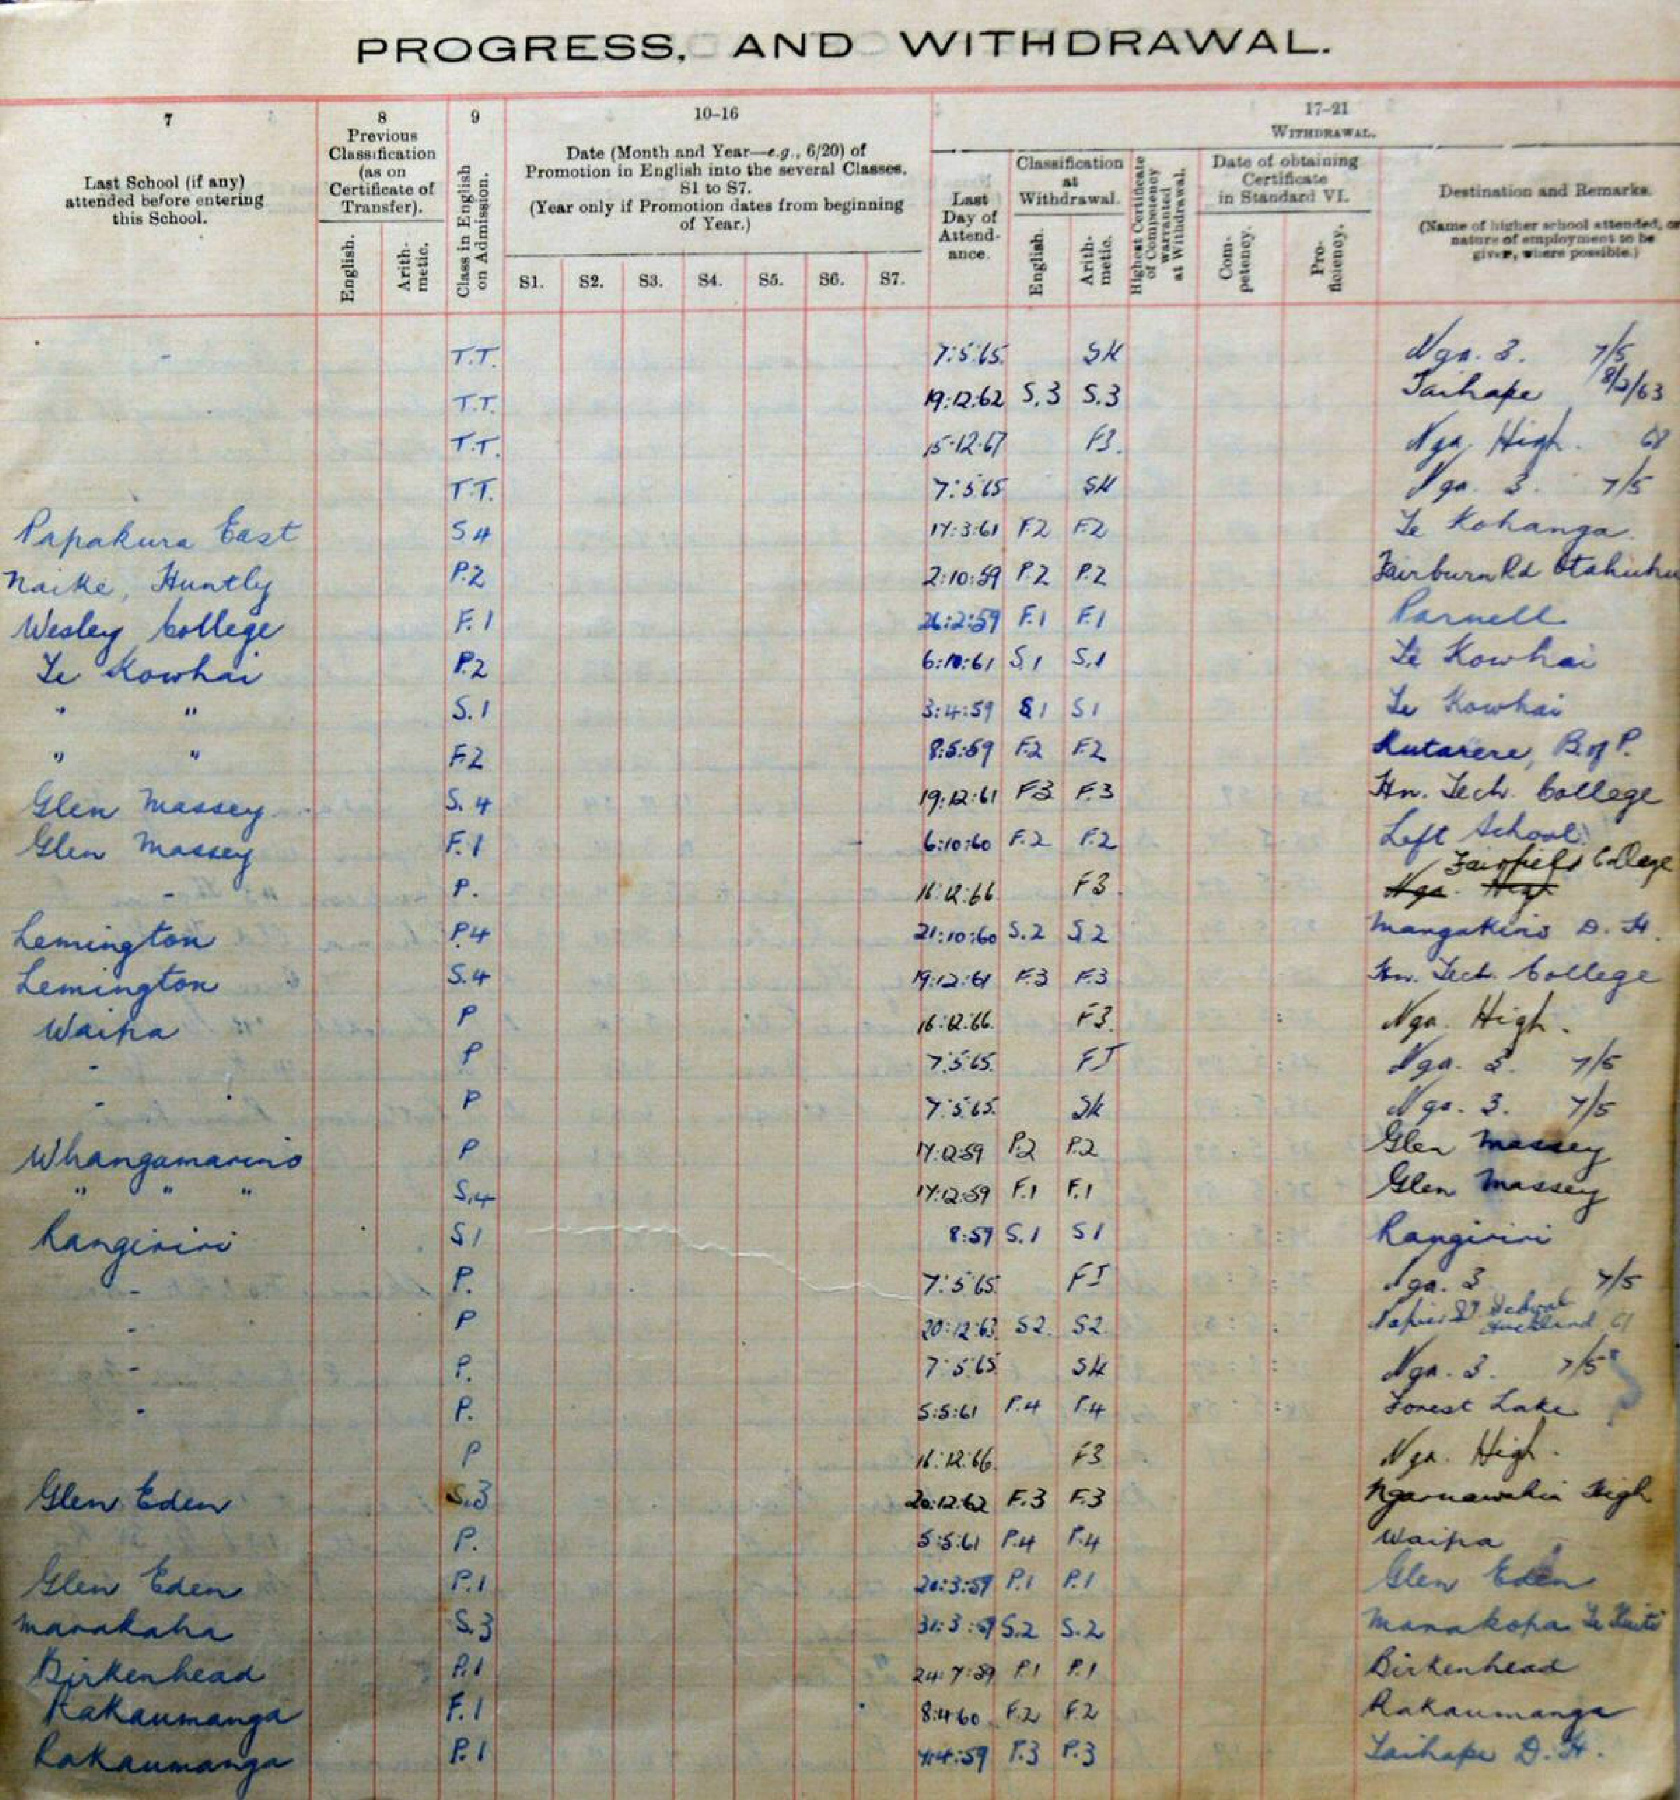 PROGRESS, AND WITHDRAWAL.
7 8 9 10–16 17–21
Last School (if any) attended before entering this School.
Previous Classification (as on Certificate of Transfer).
English. Arith-metic.
Class in English on Admission.
Date (Month and Year—e.g., 6/20) of Promotion in English into the several Classes, S1 to S7.
(Year only if Promotion dates from beginning of Year.)
S1. S2. S3. S4. S5. S6. S7.
WITHDRAWAL.
Last Day of Attend-ance.
Classification at Withdrawal.
English. Arith-metic.
Highest Certificate of Competency warranted at Withdrawal.
Date of obtaining Certificate in Standard VI.
Com-petency. Pro-ficiency.
Destination and Remarks.
(Name of higher school attended, or nature of employment to be given, where possible.)
- T.T. 7:5:65 Nga. 3. 7/5
T.T. 19:12:62 S.3 S.3 Taihape 8/2/63
T.T. 15-12-67 F3. Nga. High. 68
T.T. 7:5:65 Nga. 3. 7/5
Papakura East S4 17:3:61 F.2 F.2 Te Kohanga
Naike, Huntly P.2 2:10:59 P.2 P.2 Fairburn Rd Otahuhu
Wesley College F.1 26:2:59 F.1 F.1 Parnell
Te Kowhai P.2 6:10:61 S.1 S.1 Te Kowhai
" " S.1 3:4:59 S1 S1 Te Kowhai
" " F.2 8:5:59 F.2 F.2 Kutarere, B. of P.
Glen Massey S.4 19:12:61 F3 F.3 Hn. Tech. College
Glen Massey F.1 6:10:60 F.2 F.2 Left School
Fairfield College
- P. 16:12:66 F3. Nga. High
Lemington P4 21:10:60 S.2 S2 Mangakino D. H.
Lemington S.4 19:12:61 F.3 F.3 Hn. Tech. College
Waipa P 16:12:66 F3. Nga. High.
- P 7:5:65 Nga. 3. 7/5
- P 7:5:65 Nga. 3. 7/5
Whangamarino P 17:12:59 P.2 P.2 Glen Massey
" " " S.4 17:12:59 F.1 F.1 Glen Massey
Rangiriri S1 8:59 S.1 S1 Rangiriri
- P. 7:5:65 Nga. 3 7/5
- P 20:12:63 S2. S2. Napier St School
Auckland
- P. 7:5:65 Nga. 3. 7/5
- P. 5:5:61 P.4 P.4 Forest Lake
P 16:12:66 F3 Nga. High.
Glen Eden S.3 20:12:62 F.3 F.3 Ngaruawahia High
P. 5:5:61 P.4 P.4 Waipa
Glen Eden P.1 20:3:59 P.1 P.1 Glen Eden
S.3 31:3:59 S.2 S.2 Marakopa Te Kuiti
Birkenhead P.1 24:7:59 P.1 P.1 Birkenhead
Rakaumanga F.1 8:4:60 F.2 F.2 Rakaumanga
Rakaumanga P.1 P.3 P.3 Taihape D. H.